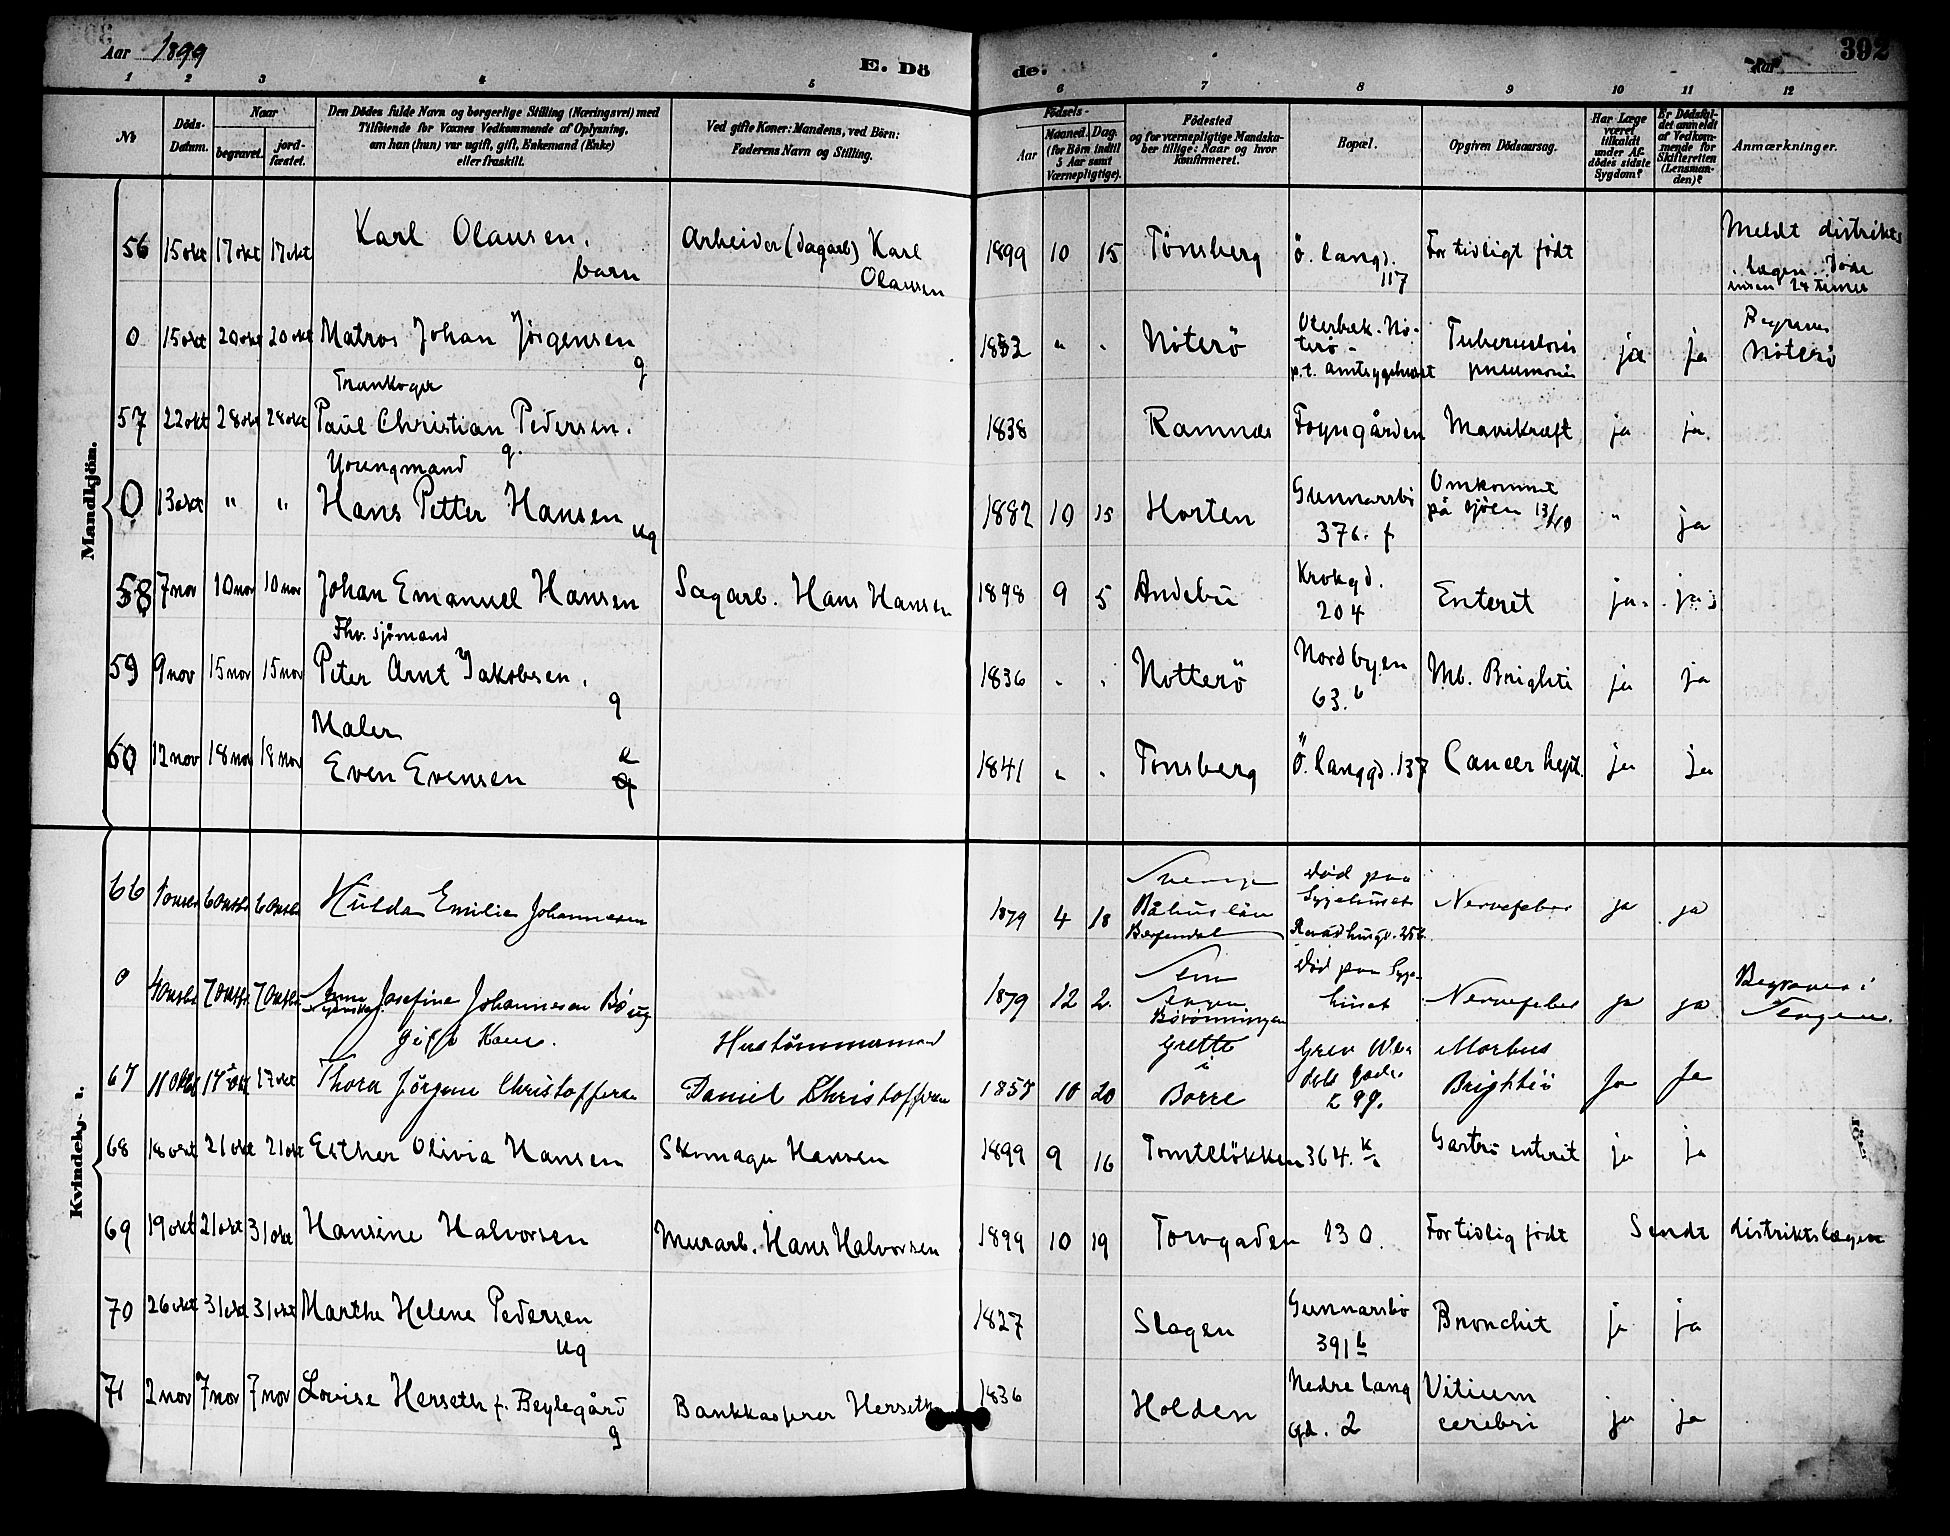 Aar 1899
E. Dö de.
Aar
392
1 2 3 4 5 6 7 8 9 10 11 12
No
Döds-Datum.
Naar
begravet.
jord-fæstet.
Den Dödes fulde Navn og borgerlige Stilling (Næringsvei) med
Tilföiende for Voxnes Vedkommende af Oplysning,
om han (hun) var ugift, gift, Enkemand (Enke)
eller fraskilt.
Ved gifte Koner: Mandens, ved Börn:
Faderens Navn og Stilling.
Födsels-
Aar
Maaned. Dag.
(for Börn indtil
5 Aar samt
Værnepligtige).
Födested
og for værnepligtige Mandska-
ber tillige: Naar og hvor
konfirmeret.
Bopæl.
Opgiven Dödsaarsag.
Har Læge
været
tilkaldt
under Af-
dödes sidste
Sygdom?
Er Dödsfal-
det anmeldt
af Vedkom-
mende for
Skifteretten
(Lensman-
den)?
Anmærkninger.
Mandkjön.
56 15 okt 17 okt 17 okt Karl Olausen. barn Arbeider (dagarb) Karl Olausen 1899 10 15 Tönsberg Ö. langg. 117 For tidligt födt Meldt distrikts lægen. Döde innen 24 timer
0 15 okt 20 okt 20 okt Matros Johan Jörgensen g 1832 " . Nöterö Nö-terö - p.t. Amtsygehuset Tuberculosis pneumonia ja ja Nöterö
57 22 okt 28 okt 28 okt Trankoger Paul Christian Pedersen. g. 1838 Ramnæs Foyngården Mavekræft ja ja.
0 13 okt " " Youngmand Hans Petter Hansen ug 1882 10 15 Horten Gunnarsbö 376. f Omkommet på sjöen 13/10 " ja
58 7 nov 10 nov 10 nov Johan Emanuel Hansen Sagarb. Hans Hansen 1898 9 5 Andebu Krokgd. 204 Enterit ja. ja
59 9 nov 15 nov 15 nov Fhv. sjömand Peter Arnt Jakobsen. g 1836 . . Nötterö Nordbyen 63.b Mb. Brighti ja ja
60 12 nov 18 nov 18 nov Maler Even Evensen e 1841 " . Tönsberg Ö. langgd. 137 Cancer hept. ja ja
Kvindekj
66 Hulda Emilie Johannesen 1879 4 18 Sverige Båhuslän Död paa Sygehuset Nervefeber ja ja
0 Josefine Johannesen ug 1879 12 2 Död paa Syge-huset Nervefeber ja ja Begraves i
67 11 Okt 17 Okt 17 okt gift Kone. Thora Jörgine Christoffersen Hustömmermand Daniel Christoffersen 1857 10 20 Grette i Borre Grev Wedels gade Morbus Brightii Ja Ja
68 18 okt 21 okt 21 okt Esther Olivia Hansen Skomager Hansen 1899 9 16 Tomtelökken 364. Gastro enterit ja ja
69 19 okt 21 okt 31 okt Hansine Halvorsen Murarb. Hans Halvorsen 1899 10 19 Torvgaden 130. For tidlig födt Sendt distriktslægen
70 26 okt 31 okt 31 okt Marthe Helene Pedersen ug 1827 Slagen Gunnarsbö 391 b Bronchit ja ja
71 2 nov 7 nov 7 nov Lovise Herseth f. Beylegård g Bankkasserer Herseth 1836 Holden Nedre Lang gd. 2 Vitium cerebri ja ja